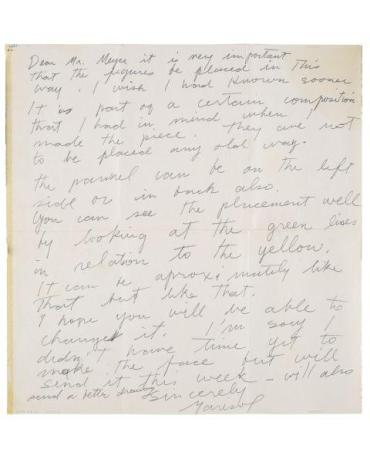 Dear Mr. Meyer it is very important
that the figures be placed in this
way. I wish I had known sooner
It is part of a certain composition
that I had in mind when I
made the piece. They are not
to be placed any old way.
the pannel can be on the left
side or in back also.
You can see the placement well
by looking at the green lines
in relation to the yellow.
It can be aproximately like
that but like that.
I hope you will be able to
change it. I'm sory I
didn't have time yet to
make the face but will
send it this week – will also
send a better drawing
Sincerely
Marisol